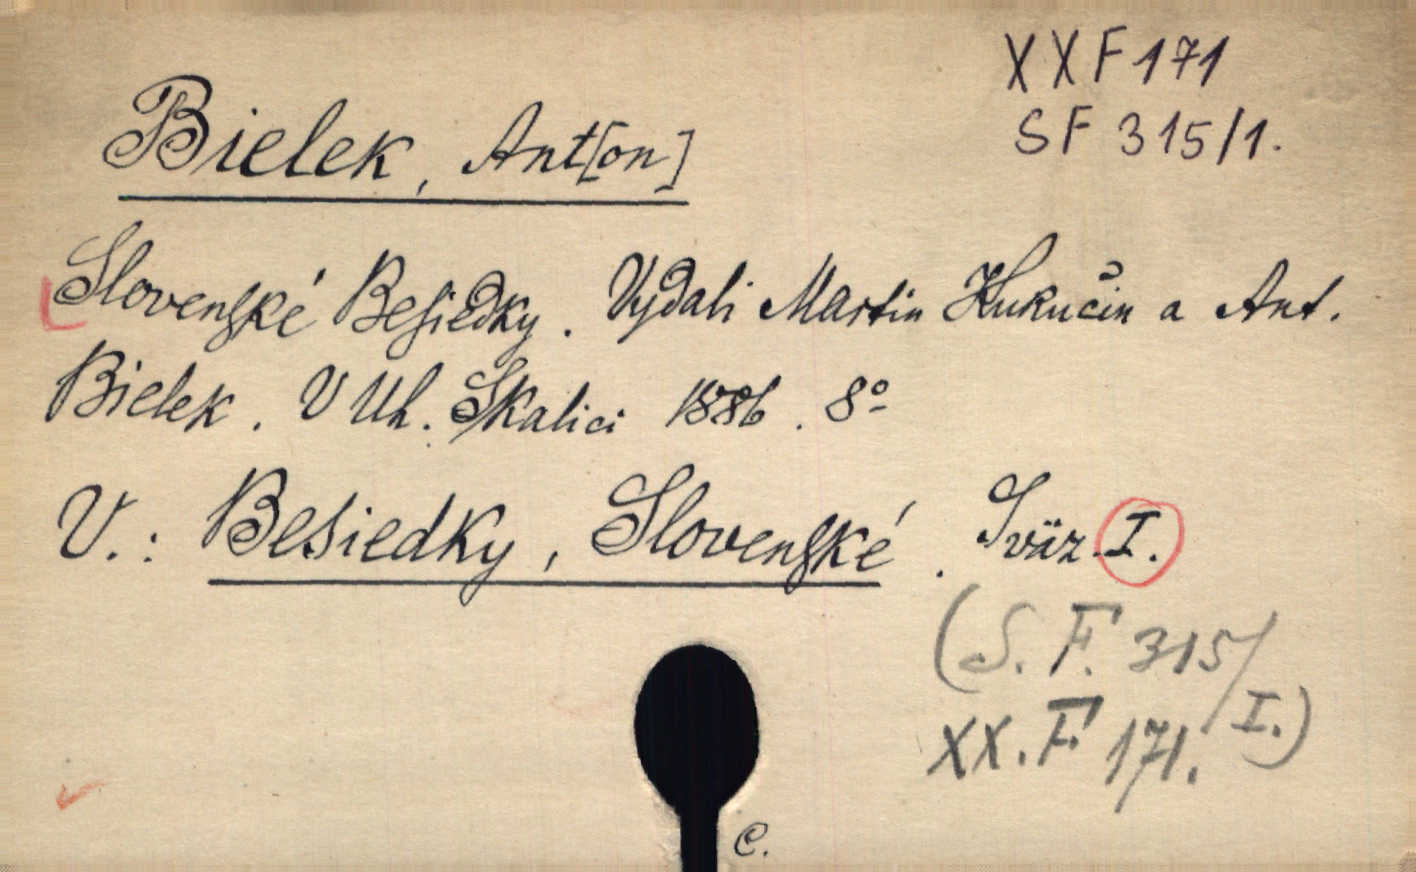 XXF 171
SF 315/1.
Bielek, Ant[on]
Slovenské Besiedky. Vydali Martin Kukučin a Ant.
Bielek. V Uh. Skalici 1886. 8º
V.: Besiedky, Slovenské. Sväz. I.
(S. F. 315/I.)
XX. F. 171.
C.